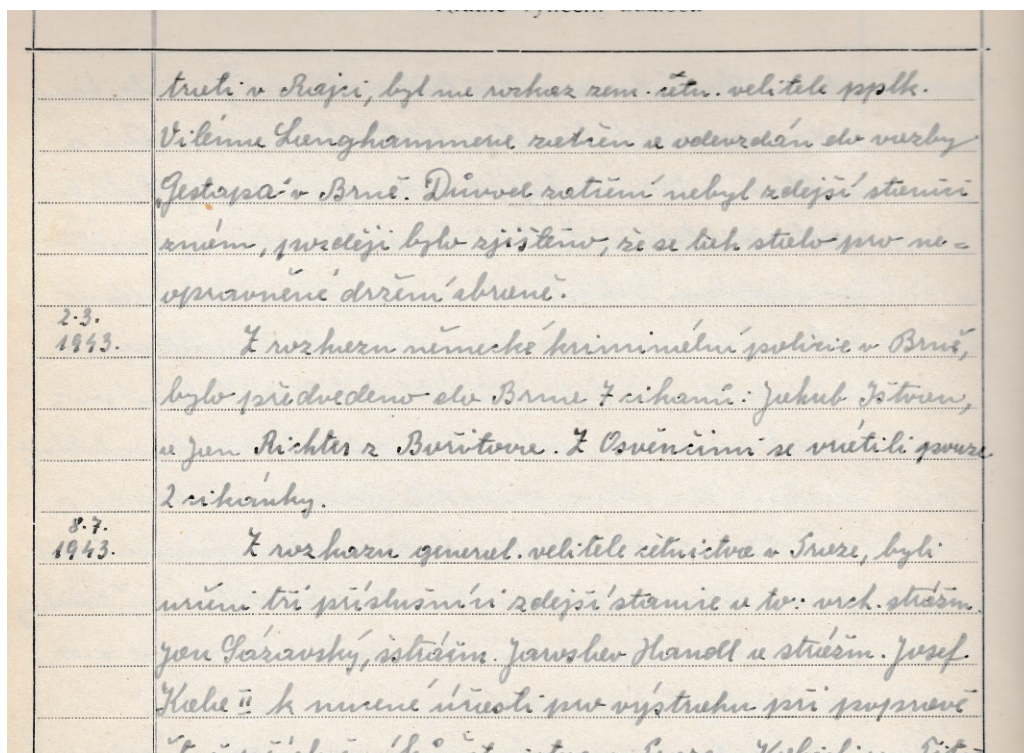 trati v Rájci, byl na rozkaz zem. četn. velitele pplk.
Viléma Langhammera zatčen a odevzdán do vazby
„Gestapa" v Brně. Důvod zatčení nebyl zdejší stanici
znám, později bylo zjištěno, že se tak stalo pro ne=
oprávněné držení zbraně.
2.3.
1943.
Z rozkazu německé kriminální policie v Brně,
bylo předvedeno do Brna 7 cikánů: Jakub Ištvan,
a Jan Richter z Bořitova. Z Osvěnčimi se vrátili pouze
2 cikánky.
8.7.
1943.
Z rozkazu general. velitele četnictva v Praze, byli
určeni tři příslušníci zdejší stanice a to: vrch. strážm.
Jan Sázavský, šstrážm. Jaroslav Handl a strážm. Josef
II k nucené účasti pro výstrahu při popravě